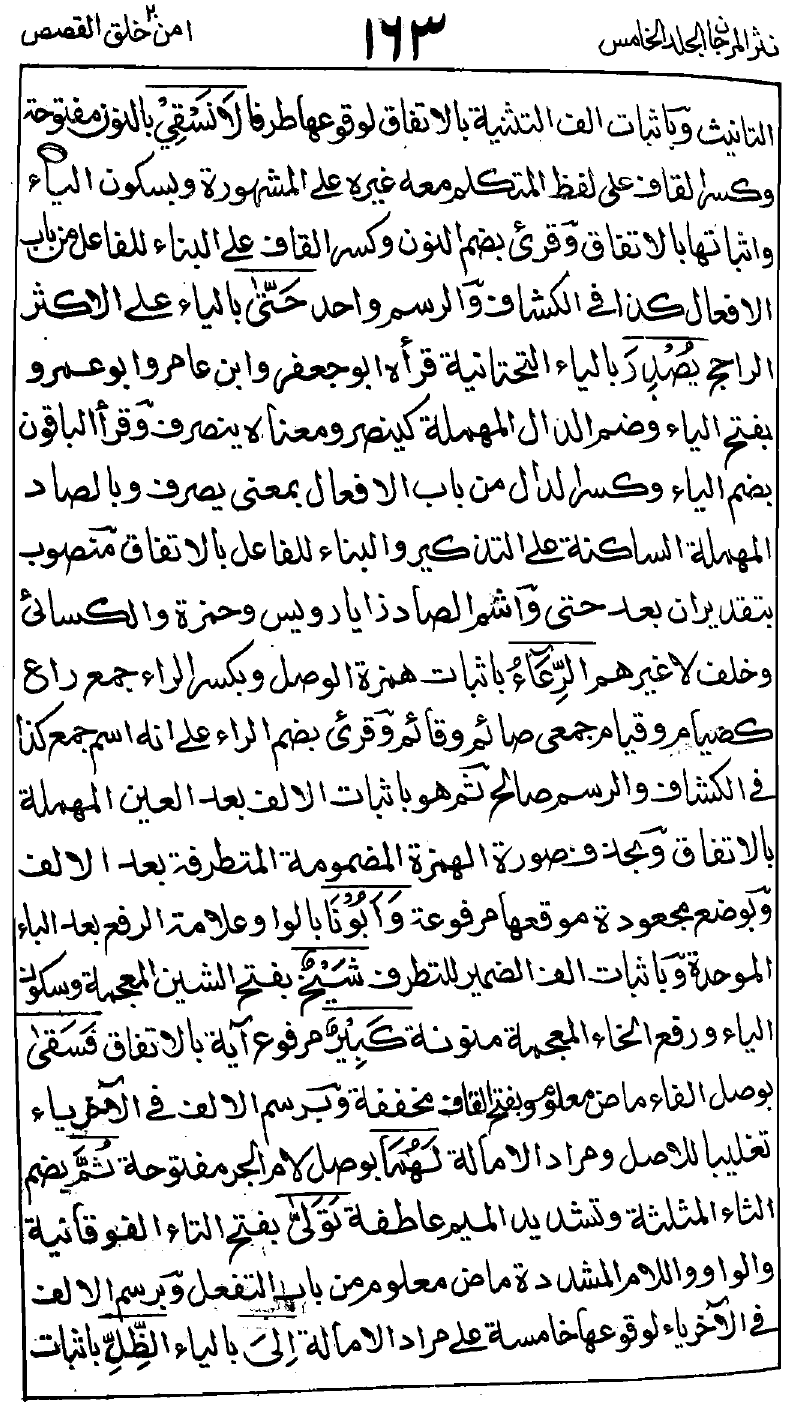 نثر المرجان الجلد الخامس ١٦٣ امن٢٠ خلق القصص
التانيث وَبا ثبات الف التثنية بالاتفاق لوقوعها طرفا لَا نَسْقِيْ بالنون مفتوحة
وكسر القاف على لفظ المتكلم معه غيره على المشهورة وبسكون الياء
واثباتها بالاتفاق وَقرئ بضم النون وكسر القاف على البناء للفاعل من باب
الافعال كذا في الكشاف وَالرسم واحد حَتّٰى بالياء على الاكثر
الراجح يُصْدِرَ بالياء التحتانية قرأه ابوجعفر وابن عامر وابو عمرو
بفتح الياء وضم الدال المهملة كينصر ومعناه ينصرف وَقرأ الباقون
بضم الياء وكسر الدال من باب الافعال بمعنى يصرف وبالصاد
المهملة الساكنة على التذكير والبناء للفاعل بالاتفاق مَنصوب
بتقدير ان بعد حتى وَاشم الصاد زايا رويس وحمزة والكسائي
وخلف لا غيرهم الرِّعَآءُ باثبات همزة الوصل وبكسر الراء جمع راع
كصيام وقيام جمعى صائم وقائم وَقرئ بضم الراء على انه اسم جمع كذا
في الكشاف والرسم صالح ثَم هو باثبات الالف بعد العين المهملة
بالاتفاق وَبحذف صورة الهمزة المضمومة المتطرفة بعد الالف
وَبوضع مجعودة موقعها مرفوعة وَاَبُوْنَا بالواو علامة الرفع بعد الباء
الموحدة وَباثبات الف الضمير للتطرف شَيْخٌ بفتح الشين المعجمة وسكون
الياء ورفع الخاء المعجمة منونة كَبِيْرٌ مرفوع آية بالاتفاق فَسَقٰى
بوصل الفاء ماض معلوم وبفتح القاف مخففة وَبرسم الالف في الآخر ياء
تغليبا للاصل ومراد الامالة لَهُمَا بوصل لام الجر مفتوحة ثُمَّ بضم
الثاء المثلثة وتشديد الميم عاطفة تَوَلّٰى بفتح التاء الفوقانية
والواو واللام المشددة ماض معلوم من باب التفعل وَبرسم الالف
في الآخر ياء لوقوعها خامسة على مراد الامالة اِلَى بالياء الظِّلِّ باثبات